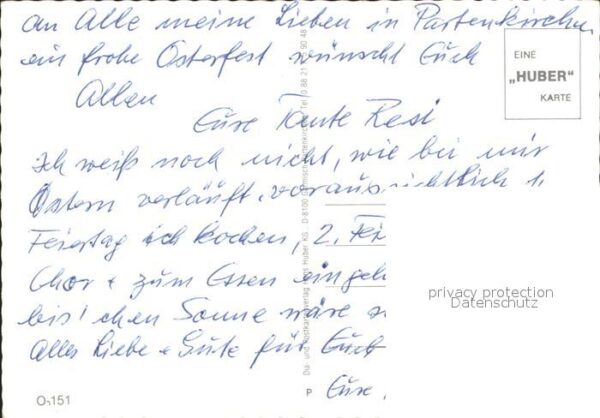 An Alle meine Lieben in Partenkirchen
ein frohe Osterfest wünscht Euch
Allen
Eure Tante Resi
Ich weiß noch nicht, wie bei mir
Ostern verläuft, voraussichtlich 1.
Feiertag ich kochen, 2. Fei
Chor + zum Essen eingel
bis'chen Sonne wäre s
Alles Liebe + Gute für Euch
Eure
EINE
„HUBER"
KARTE
privacy protection
Datenschutz
O-151
P